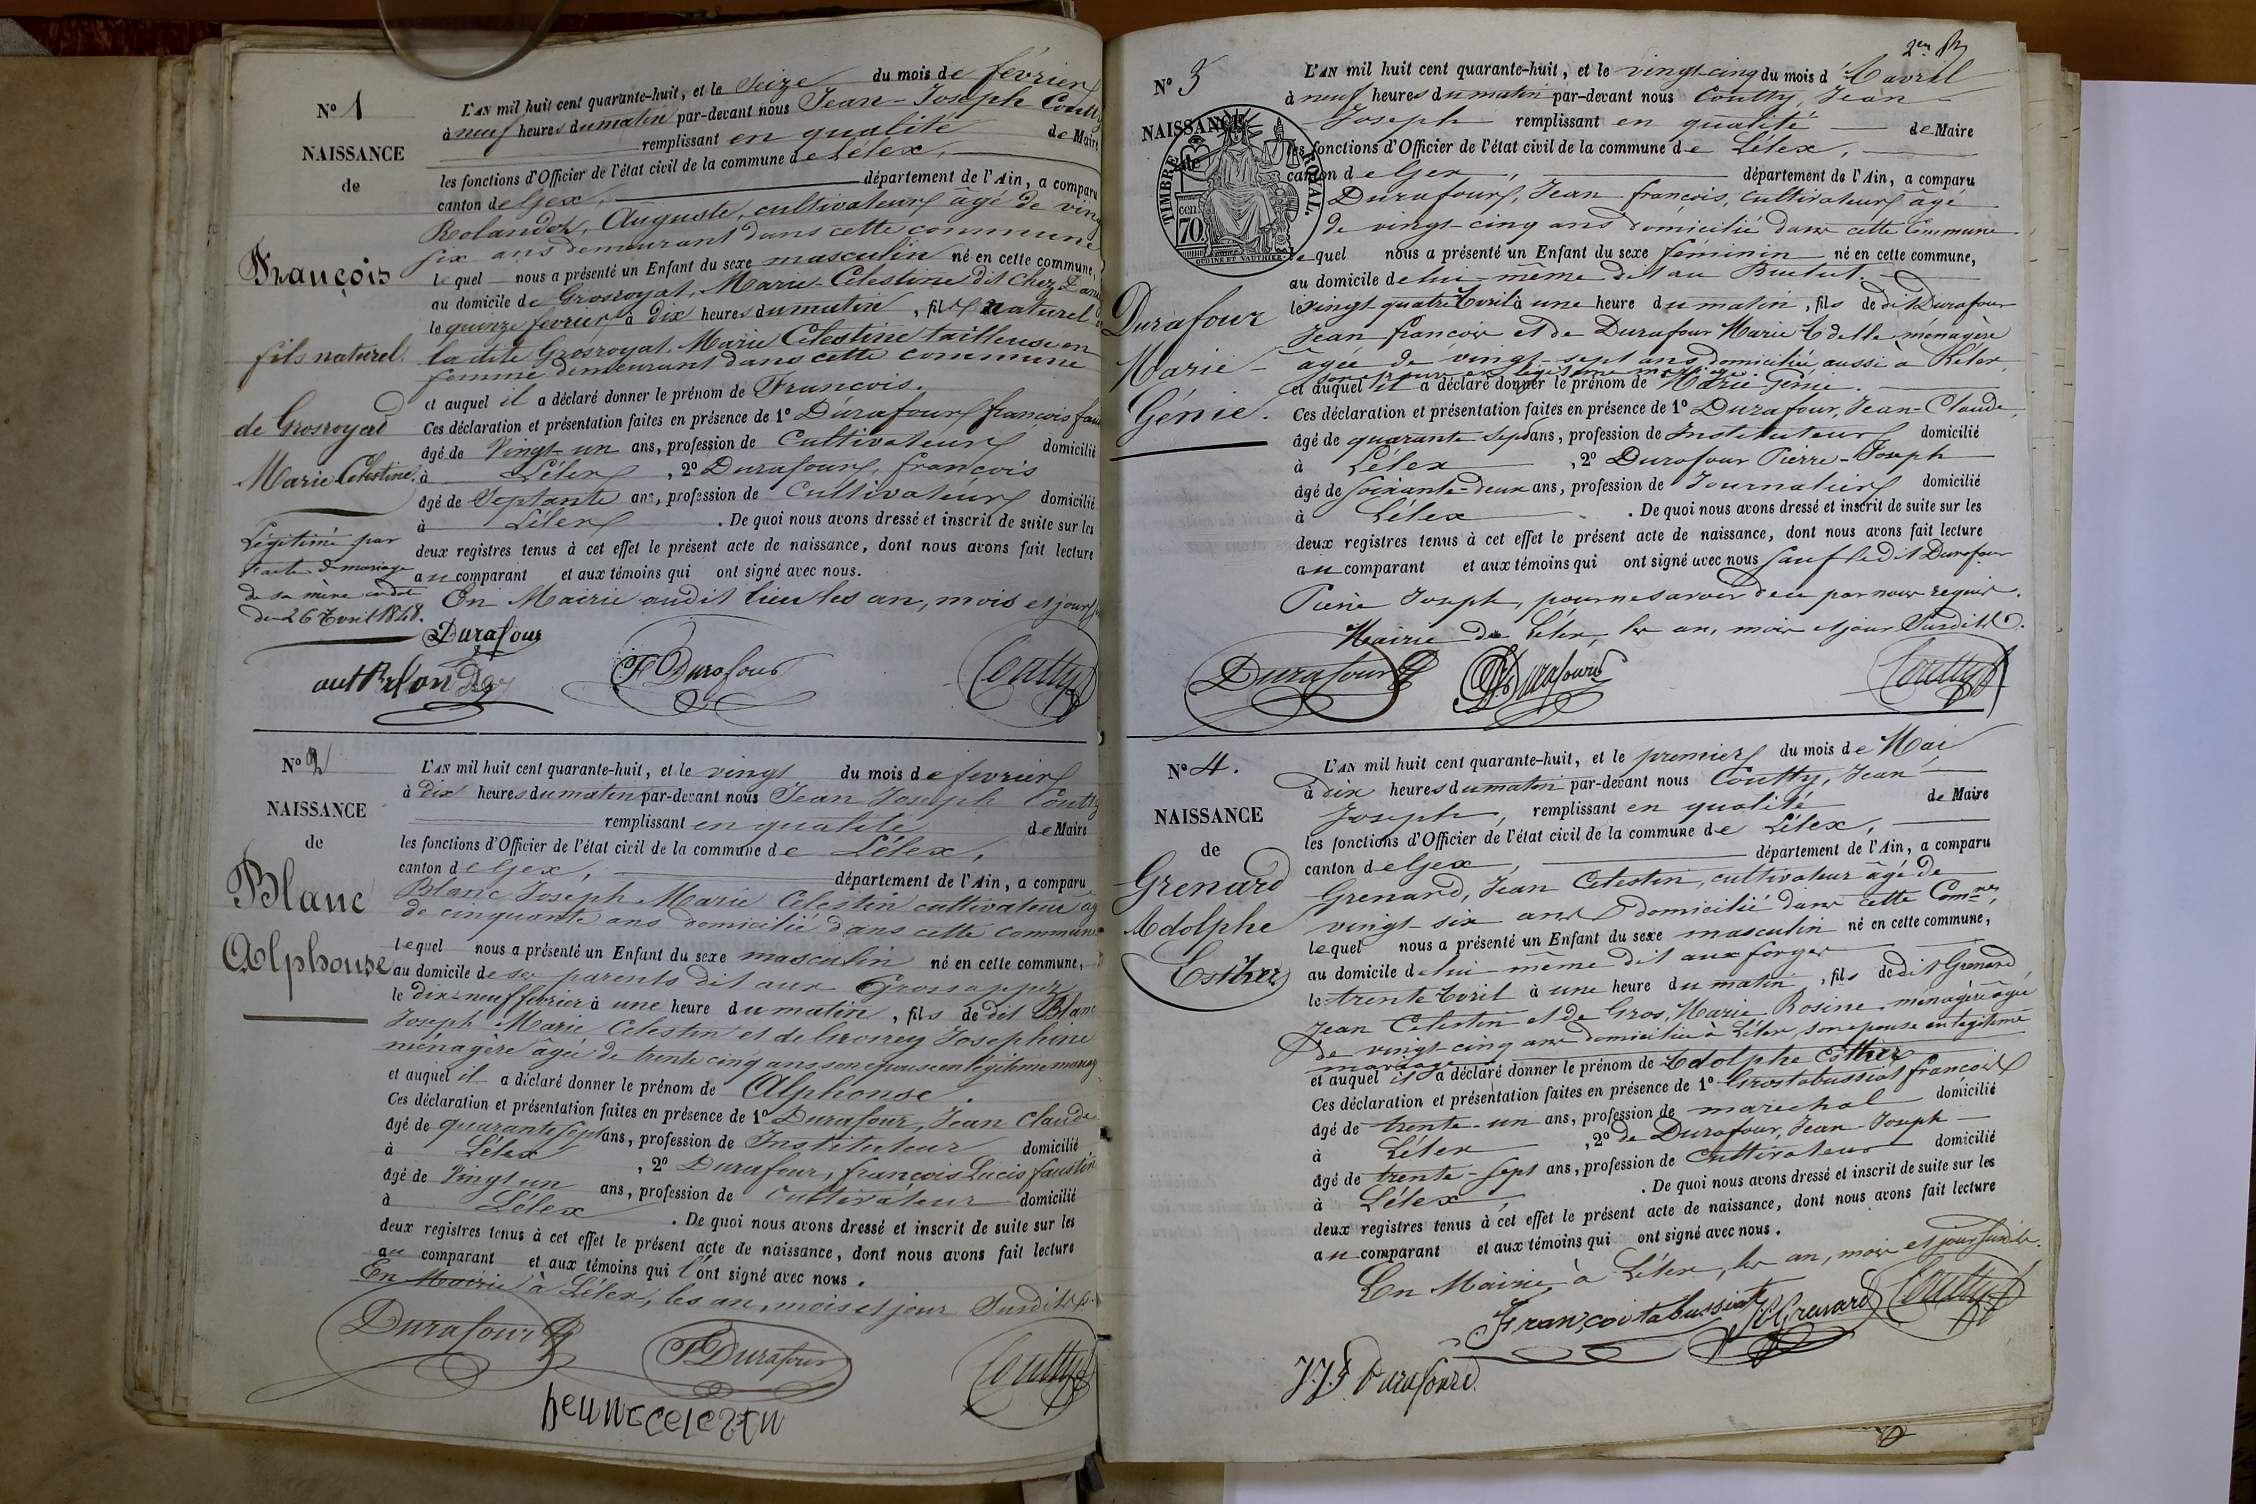 N° 1
NAISSANCE
de
François
fils naturel
de Grosroyat
Marie Celestine.
Légitimé par
l'acte de mariage
de sa mère
du 26 Avril 1848.
L'AN mil huit cent quarante-huit, et le Seize du mois de février
à neuf heures du matin par-devant nous Jean-Joseph Coutty
remplissant en qualité de Maire
les fonctions d'Officier de l'état civil de la commune de Lélex,
canton de Gex, département de l'Ain, a comparu
Rolandez, Auguste, cultivateur âgé de vingt
six ans demeurant dans cette commune
lequel nous a présenté un Enfant du sexe masculin né en cette commune,
au domicile de Grosroyat, Marie-Celestine dit Chez
le quinze fevrier à dix heures du matin, fils naturel
la dite Grosroyat, Marie Celestine tailleuse en
femme demeurant dans cette commune
et auquel il a déclaré donner le prénom de François.
Ces déclaration et présentation faites en présence de 1° Durafour françois
âgé de Vingt-un ans, profession de Cultivateur domicilié
à Lélex, 2° Durafour, françois
âgé de Septante ans, profession de Cultivateur domicilié
à Lélex. De quoi nous avons dressé et inscrit de suite sur les
deux registres tenus à cet effet le présent acte de naissance, dont nous avons fait lecture
au comparant et aux témoins qui ont signé avec nous.
En Mairie audit lieu les an, mois et jour
Durafour
F Durafour
Coutty
N° 2
NAISSANCE
de
Blanc
Alphonse
L'AN mil huit cent quarante-huit, et le vingt du mois de fevrier
à dix heures du matin par-devant nous Jean Joseph Coutty
remplissant en qualité de Maire
les fonctions d'Officier de l'état civil de la commune de Lélex,
canton de Gex, département de l'Ain, a comparu
Blanc Joseph Marie Celestin cultivateur âgé
de cinquante ans domicilié dans cette commune
lequel nous a présenté un Enfant du sexe masculin né en cette commune,
au domicile de ses parents dit aux
le dix-neuf fevrier à une heure du matin, fils de dit Blanc
Joseph Marie Celestin et de Josephine
ménagère âgée de trente cinq ans son epouse en légitime mariage
et auquel il a déclaré donner le prénom de Alphonse.
Ces déclaration et présentation faites en présence de 1° Durafour, Jean Claude
âgé de quarante sept ans, profession de Instituteur domicilié
à Lélex, 2° Durafour, françois Lucis faustin
âgé de Vingt un ans, profession de Cultivateur domicilié
à Lélex. De quoi nous avons dressé et inscrit de suite sur les
deux registres tenus à cet effet le présent acte de naissance, dont nous avons fait lecture
au comparant et aux témoins qui l'ont signé avec nous.
En Mairie à Lélex, les an, mois et jour Susdits
Durafour
F Durafour
Coutty
N° 3
NAISSANCE
de
TIMBRE ROYAL.
70 cen.
Durafour
Marie-
Génie.
L'AN mil huit cent quarante-huit, et le vingt-cinq du mois d'Avril
à neuf heures du matin par-devant nous Coutty, Jean-
Joseph remplissant en qualité de Maire
les fonctions d'Officier de l'état civil de la commune de Lélex,
canton de Gex, département de l'Ain, a comparu
Durafour, Jean françois, cultivateur âgé
de vingt-cinq ans domicilié dans cette Commune.
lequel nous a présenté un Enfant du sexe féminin né en cette commune,
au domicile de lui-même dit au
le vingt quatre Avril à une heure du matin, fils de dit Durafour
Jean francois et de Durafour Marie Adelle ménagère
âgée de vingt-sept ans domiciliée aussi à Lélex
son epouse en légitime mariage.
et auquel il a déclaré donner le prénom de Marie Génie.
Ces déclaration et présentation faites en présence de 1° Durafour, Jean-Claude,
âgé de quarante sept ans, profession de Instituteur domicilié
à Lélex, 2° Durafour Pierre-Joseph
âgé de soixante-deux ans, profession de Journalier domicilié
à Lélex. De quoi nous avons dressé et inscrit de suite sur les
deux registres tenus à cet effet le présent acte de naissance, dont nous avons fait lecture
au comparant et aux témoins qui ont signé avec nous sauf le dit Durafour
Pierre Joseph, pour ne savoir de ce par nous requis.
Mairie de Lélex, les an, mois et jour Susdits.
Durafour
Durafour
Coutty
N° 4.
NAISSANCE
de
Grenard
Adolphe
Esther
L'AN mil huit cent quarante-huit, et le premier du mois de Mai
à dix heures du matin par-devant nous Coutty, Jean-
Joseph, remplissant en qualité de Maire
les fonctions d'Officier de l'état civil de la commune de Lélex,
canton de Gex, département de l'Ain, a comparu
Grenard, Jean Celestin, cultivateur âgé de
vingt-six ans domicilié dans cette Comne,
lequel nous a présenté un Enfant du sexe masculin né en cette commune,
au domicile de lui-même dit aux forges
le trente Avril à une heure du matin, fils de dit Grenard
Jean Celestin et de Gros, Marie Rosine ménagère âgée
de vingt-cinq ans domiciliée à Lélex son epouse en légitime
mariage
et auquel il a déclaré donner le prénom de Adolphe Esther
Ces déclaration et présentation faites en présence de 1° Grostabussiat françois
âgé de trente-un ans, profession de marechal domicilié
à Lélex, 2° de Durafour, Jean-Joseph
âgé de trente-sept ans, profession de Cultivateur domicilié
à Lélex. De quoi nous avons dressé et inscrit de suite sur les
deux registres tenus à cet effet le présent acte de naissance, dont nous avons fait lecture
au comparant et aux témoins qui ont signé avec nous.
En Mairie à Lélex, les an, mois et jour susdits.
Françoitabussiat
Grenard
Coutty
J.J. Durafour